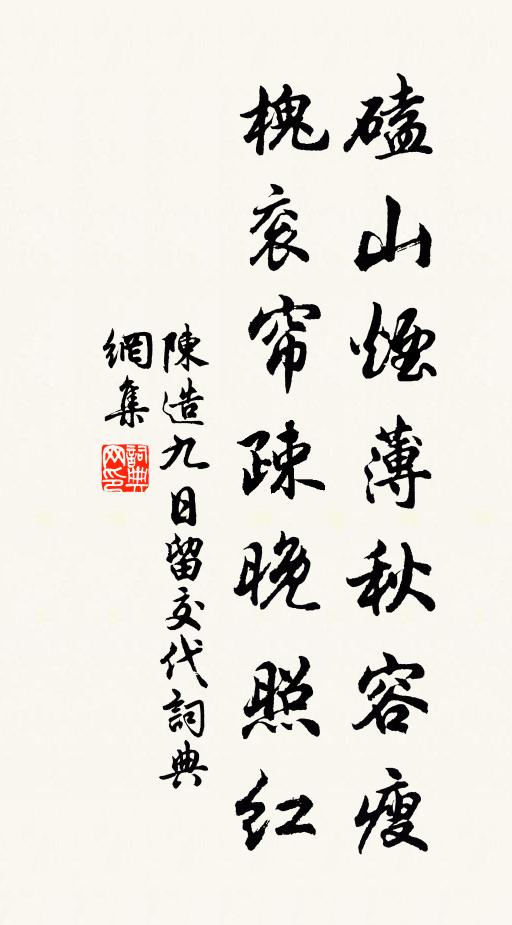 磕山煙薄秋容瘦
槐衮帘疎晚照红
陳造九日留交代詞典
網集
詞典
网印